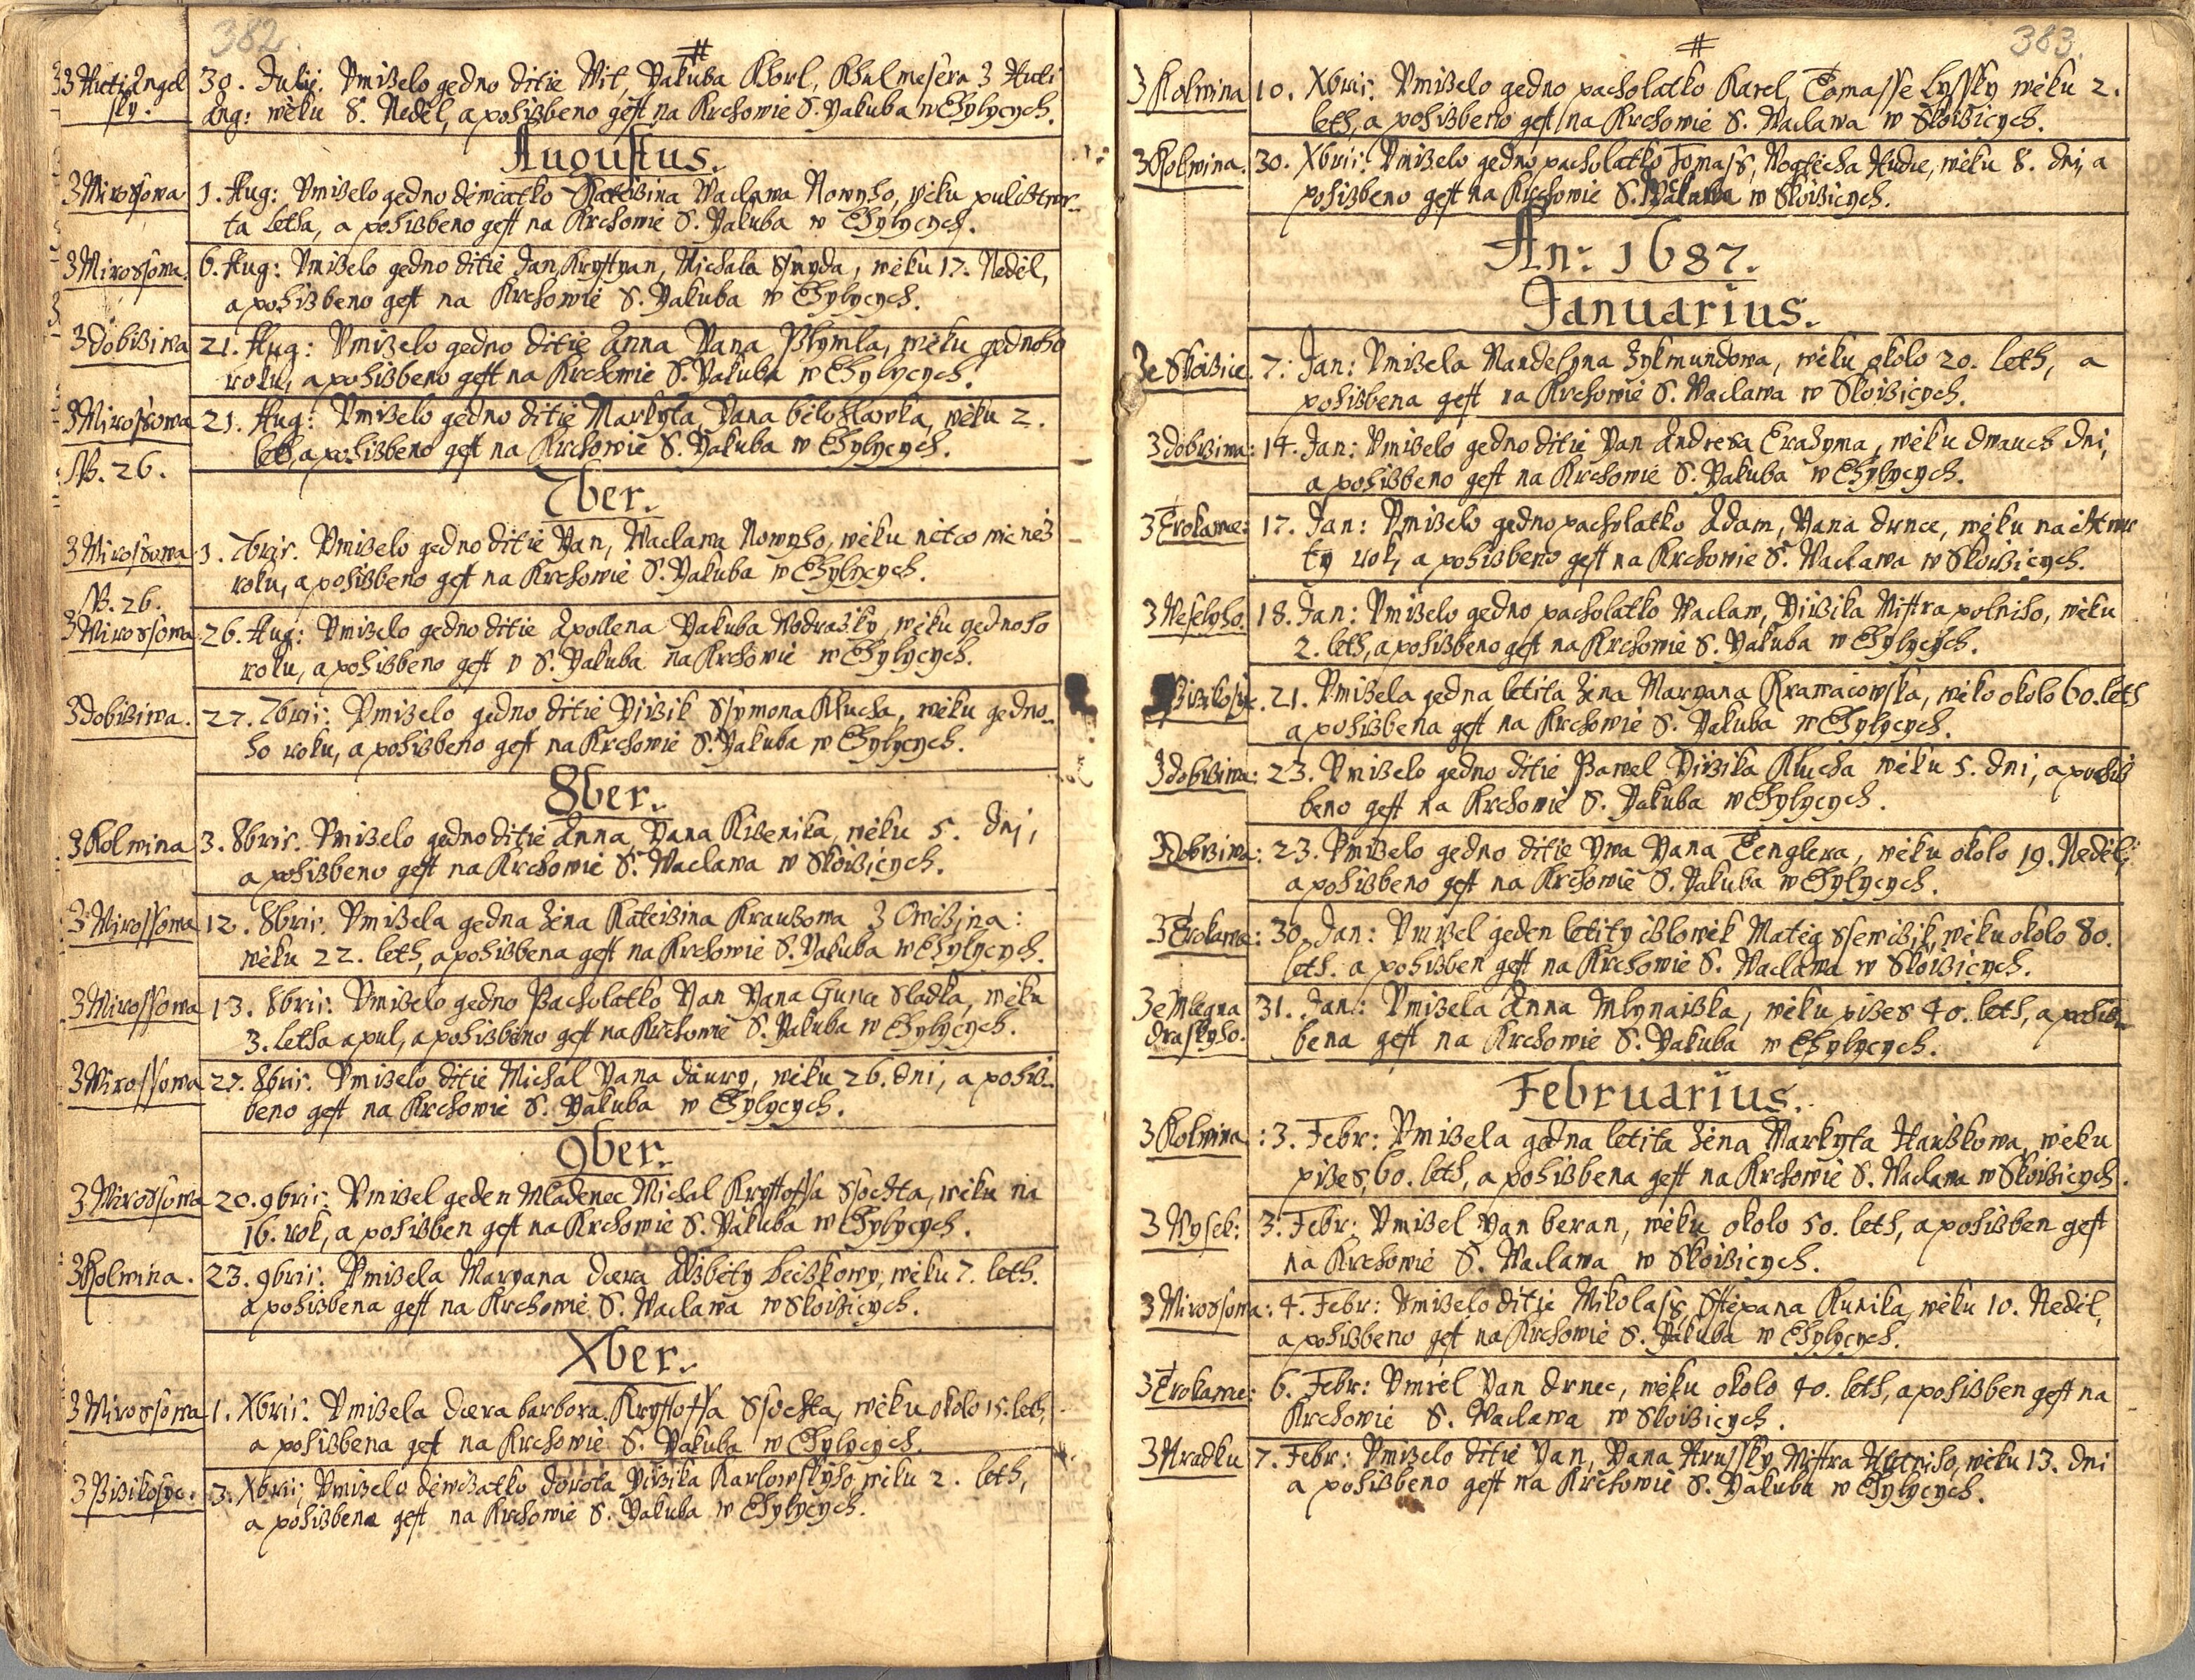 382.
#
3 Huti Angel
sky.
30. Julii. Vmiželo gedno ditie Wit, Yakuba Khorl, Khulmesera 3 Huti
Ang: wěku 8. Neděl, a pohižbeno gest na Krchowie S. Yakuba w Chylycych.
Augustus.
3 Mirossowa
1. Aug: Vmiželo gedno děwčatko Kateižina Waclawa Nowyho, věku pulcžtwr-
ta letha, a pohižbeno gest na Krchowie S. Yakuba w Chylycych.
3 Mirossowa.
6. Aug: Vmiželo gedno ditie Jan Krystyan, Michala Ssnyda, wěku 17. Neděl,
a pohižbeno gest na Krchowie S. Yakuba w Chylycych.
3 dobižiwa
21. Aug: Vmiželo gedno ditie Anna Yana Plymla, wěku gednoho
roku, a pohižbeno gest na Krchowie S. Yakuba w Chylycych.
3 Mirossowa
21. Aug: Vmiželo gedno ditie Markyta Yana běloHlawka, wěku 2.
leth, a pohižbeno gest na Krchowie S. Yakuba w Chylycych.
NB. 26.
7ber.
3 Mirossowa
3. 7bris. Vmiželo gedno ditie Yan, Waclawa Nowyho, wěku nětco wic než
roku, a pohižbeno gest na Krchowie S. Yakuba w Chylycych.
NB. 26.
3 Mirossowa
26. Aug: Vmiželo gedno ditie Apollena Yakuba Wodražky, wěku gednoho
roku, a pohižbeno gest v S. Yakuba na Krchowie w Chylycych.
3 dobižiwa.
27. 7bris. Vmiželo gedno ditie Yižik Ssymona Klucha, wěku gedno-
ho roku, a pohižbeno gest na Krchowie S. Yakuba w Chylycych.
8ber.
3 Kolwina
3. 8bris. Vmiželo gedno ditie Anna, Yana Kiženika, wěku 5. dni,
a pohižbeno gest na Krchowie S. Waclawa w Skoižicych.
3 Mirossowa
12. 8bris. Vmižela gedna žena Kateižina Kraužowa 3 Owcžjna:
wěku 22. leth, a pohižbena gest na Krchowie S. Yakuba w Chylycych.
3 Mirossowa
13. 8bris. Vmiželo gedno Pacholatko Yan Yana Guna Sladka, wěku
3. letha a pul, a pohižbeno gest na Krchowie S. Yakuba w Chylycych.
3 Mirossowa
27. 8bris. Vmiželo ditie Michal Yana daury, wěku 26. dni, a pohiž-
beno gest na Krchowie S. Yakuba w Chylycych.
9ber.
3 Mirossowa
20. 9bris. Vmižel geden Mladenec Michal Krystoffa Ssochta, wěku na
16. rok, a pohižben gest na Krchowie S. Yakuba w Chylycych.
3 Kolwina.
23. 9bris. Vmižela Maryana dcera Alžběty bečžkowy, wěku 7. leth.
a pohižbena gest na Krchowie S. Waclawa w Skoižicych.
Xber.
3 Mirossowa
1. Xbris. Vmižela dcera barbora Krystoffa Ssochta, wěku okolo 15. leth,
a pohižbena gest na Krchowie S. Yakuba w Chylycych.
3 Pižikosyc.
3. Xbris, Vmiželo děwčžatko dorota Yižika Karlowskyho, wěku 2. leth,
a pohižbena gest na Krchowie S. Yakuba w Chylycych.
383.
#
3 Kolwina
10. Xbris. Vmiželo gedno pacholatko Karel, Tomasse Lyssky wěku 2.
leth, a pohižbeno gest na Krchowie S. Waclawa w Skoižicych.
3 Kolwina.
30. Xbris. Vmiželo gedno pacholatko Tomass, Wogtěcha Hudce, wěku 8. dni, a
pohižbeno gest na Krchowie S. Waclawa w Skoižicych.
An: 1687.
Januarius.
3e Skoižic.
7. Jan: Vmižela Mandelyna Zykmundowa, wěku okolo 20. leth, a
pohižbena gest na Krchowie S. Waclawa w Skoižicych.
3 dobižiwa:
14. Jan: Vmiželo gedno ditie Yan Andresa Erazyma, wěku dwauch dni,
a pohižbeno gest na Krchowie S. Yakuba w Chylycych.
3 Trokawce:
17. Jan: Vmiželo gedno pacholatko Adam, Yana drnce, wěku na cžtwr
ty rok, a pohižbeno gest na Krchowie S. Waclawa w Skoižicych.
3 Weselyho.
18. Jan: Vmiželo gedno pacholatko Waclaw, Yižika Mistra polniho, wěku
2. leth, a pohižbeno gest na Krchowie S. Yakuba w Chylycych.
Pižikosyc.
21. Vmižela gedna letita žena Maryana Kramaiowska, wěku okolo 60. leth
a pohižbena gest na Krchowie S. Yakuba w Chylycych.
3 dobižiwa:
23. Vmiželo gedno ditie Pawel Yižika Klucha wěku 5. dni, a pohiž
beno gest na Krchowie S. Yakuba w Chylycych.
3 dobižiwa:
23. Vmiželo gedno ditie Ywa Yana Tenglera, wěku okolo 19. Neděl,
a pohižbeno gest na Krchowie S. Yakuba w Chylycych.
3 Trokawce:
30. Jan: Vmižel geden letity cžlowěk Matěg Ssewcžik, wěku okolo 80.
leth. a pohižben gest na Krchowie S. Waclawa w Skoižicych.
3e Mlegna
draskyho.
31. Jan: Vmižela Anna Mlynaižka, wěku pižes 40. leth, a pohiž-
bena gest na Krchowie S. Yakuba w Chylycych.
Februarius.
3 Kolwina:
3. Febr: Vmižela gedna letita žena Markyta Haužkowa, wěku
pižes, 60. leth, a pohižbena gest na Krchowie S. Waclawa w Skoižicych.
3 Wysek:
3. Febr: Vmižel Yan beran, wěku okolo 50. leth, a pohižben gest
na Krchowie S. Waclawa w Skoižicych.
3 Mirossowa:
4. Febr: Vmiželo ditie Mikolass, Sstěpana Kunika, wěku 10. Neděl,
a pohižbeno gest na Krchowie S. Yakuba w Chylycych.
3 Trokawce:
6. Febr: Vmřel Yan drnec, wěku okolo 40. leth, a pohižben gest na
Krchowie S. Waclawa w Skoižicych.
3 Hradku
7. Febr: Vmiželo ditie Yan, Yana Hrussky, Mistra Hutniho, wěku 13. dni
a pohižbeno gest na Krchowie S. Yakuba w Chylycych.